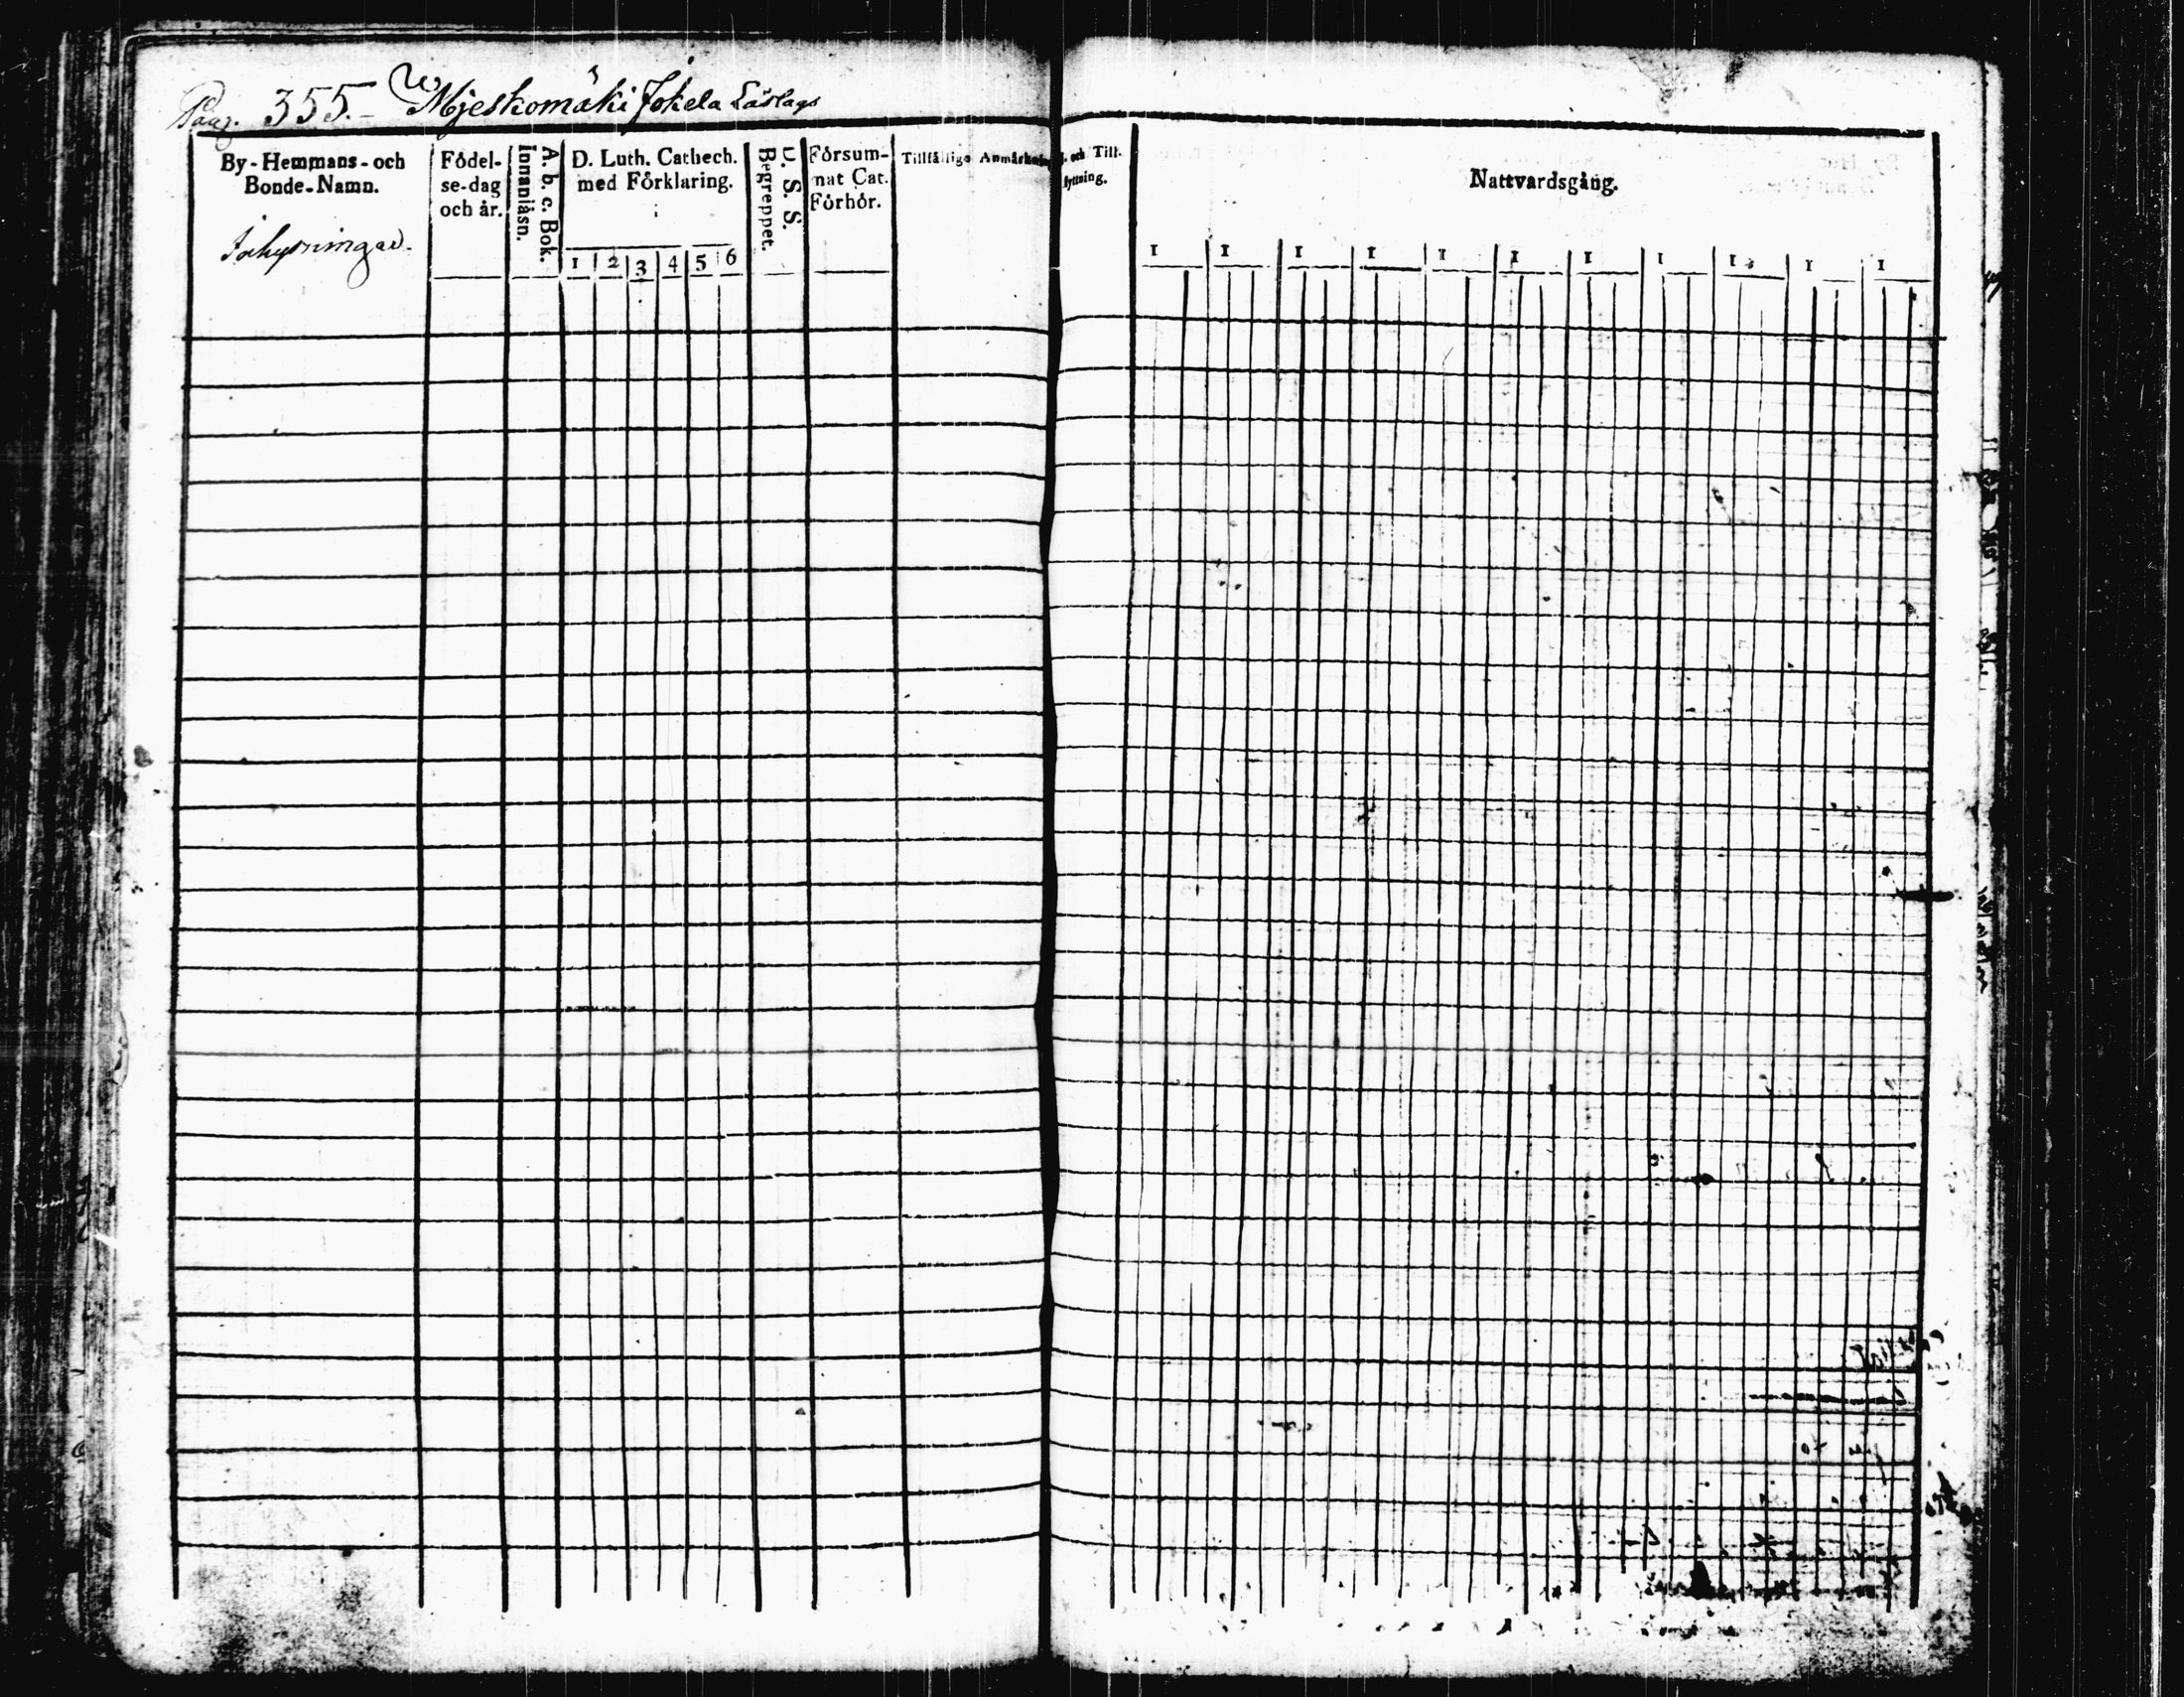 Pag. 355. Mjeskomäki Jokela Läslags
By-Hemmans-och
Bonde-Namn.
Inhysningar.
Födel-
se-dag
och år.
A. b. c. Bok.
Innanläsn.
D. Luth. Cathech.
med Förklaring.
1 2 3 4 5 6
D. S. S.
Begreppet.
Försum-
mat Cat.
Förhör.
Tillfällige Anmärkning. och Till-
flyttning.
Nattvardsgång.
1 1 1 1 1 1 1 1 1 1 1